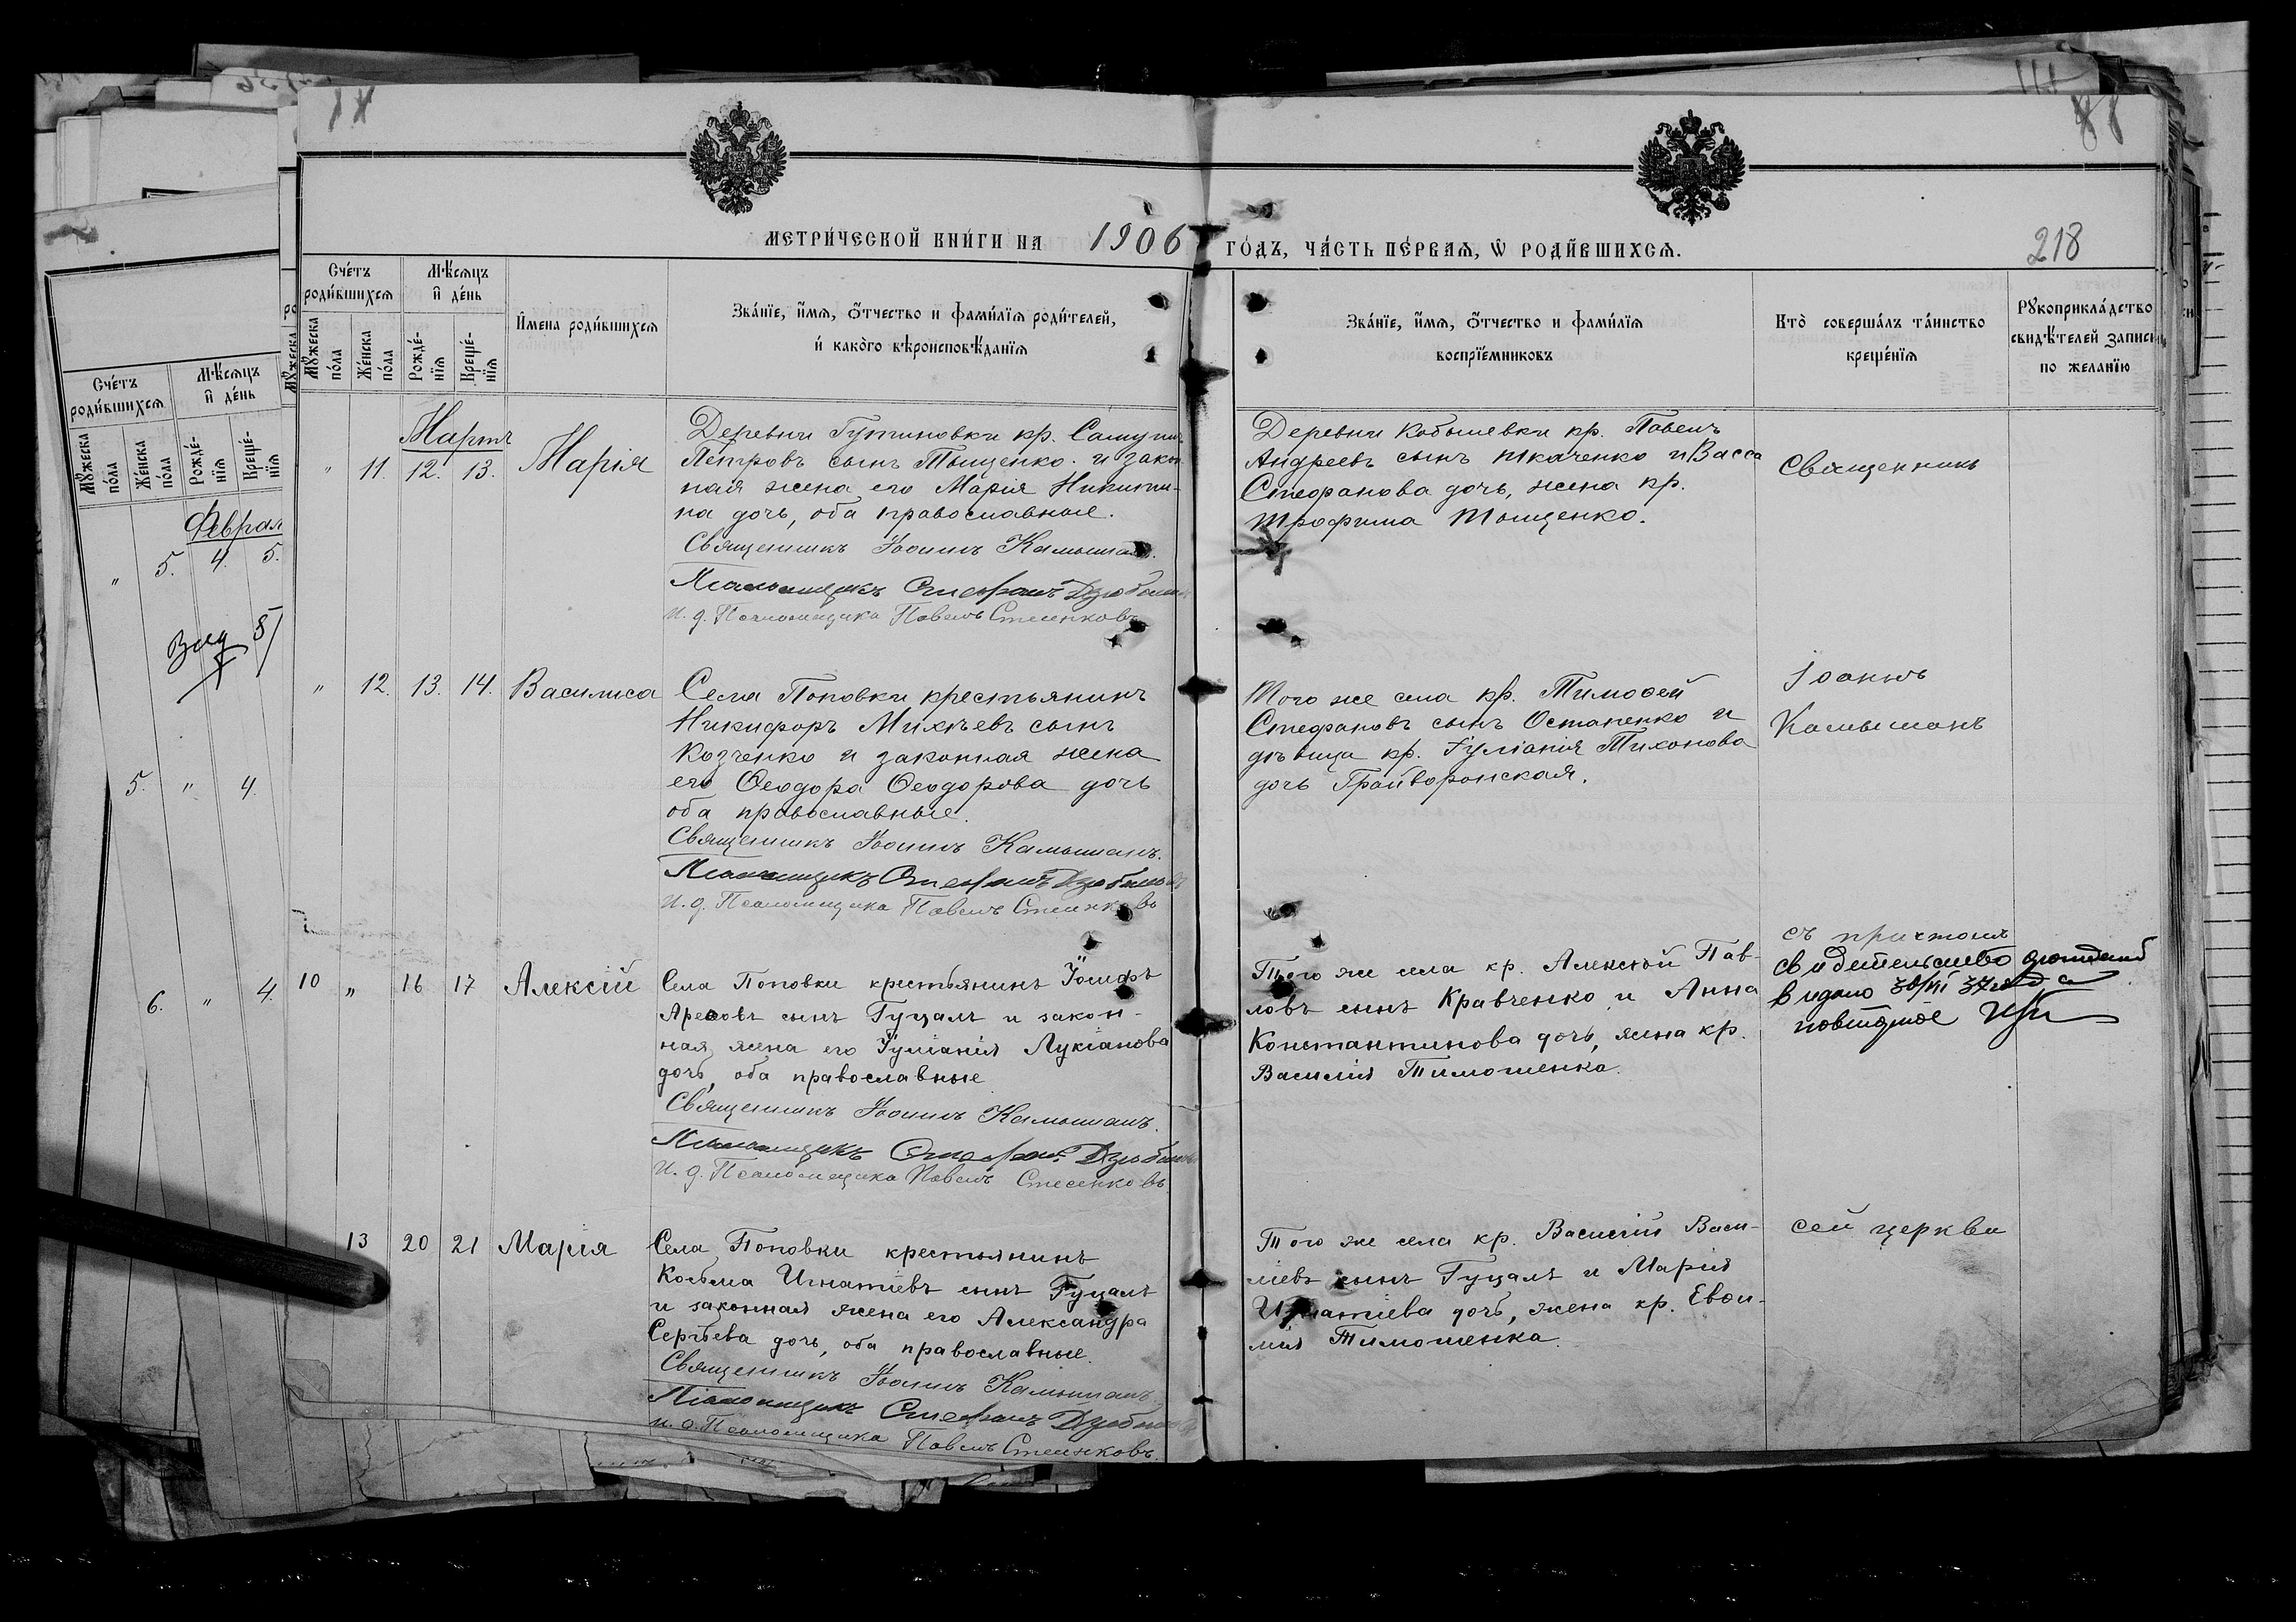 МЕТРИ́ЧЕСКОЙ КНИ́ГИ НА 1906 ГО́ДЪ, ЧА́СТЬ ПЕ́РВАЯ, Ѡ РОДИ́ВШИХСЯ.
218
Сче́тъ роди́вшихся
Мѣ́сяцъ и҆ де́нь
Мꙋ́жеска по́ла
Же́нска по́ла
Рожде́нїя
Креще́нїя
И҆мена роди́вшихся
Зва́нїе, и҆́мя, ѻ҆́тчество и фами́лїя роди́телей, и҆ како́го вѣроисповѣ́данїя
Зва́нїе, и҆́мя, ѻ҆́тчество и фами́лїя воспрїе́мниковъ
Кто̀ соверша́лъ та́инство креще́нїя
Рꙋкоприкла́дство свидѣ́телей записи по жела́нїю
Мартъ
" 11. 12. 13. Марія
Деревни Гутиновки кр.
Петровъ сынъ Тыщенко и закон
ная жена его Марія Никити-
на дочь, оба православные.
Священникъ Іоаннъ Камышанъ.
Псаломщикъ Стефанъ
И. д. Псаломщика Павелъ
Деревни Кобылевки кр. Павелъ
Андреевъ сынъ Ткаченко и Васса
Стефанова дочь, жена кр.
Трофима Тыщенко.
Священникъ
" 12. 13. 14. Василиса
Села Поповки крестьянинъ
Никифоръ Михѣевъ сынъ
Козченко и законная жена
его Ѳеодора Ѳеодорова дочь
оба православные.
Священникъ Іоаннъ Камышанъ.
Псаломщикъ Стефанъ
И. д. Псаломщика Павелъ
Того же села кр. Тимоѳей
Стефановъ сынъ Остапенко и
дѣвица кр. Іуліанія Тихонова
дочь Грайворонская.
Іоаннъ
Камышанъ
10 " 16 17 Алексій
Села Поповки крестьянинъ Іосифъ
сынъ Гуцалъ и закон-
ная жена его Іуліанія Лукіанова
дочь, оба православные
Священникъ Іоаннъ Камышанъ.
Псаломщикъ Стефанъ
И. д. Псаломщика Павелъ
Того же села кр. Алексѣй Пав-
ловъ сынъ Кравченко и Анна
Константинова дочь, жена кр.
Василія Тимошенка.
съ причтомъ
свидетельство
видано
13 20 21 Марія
Села Поповки крестьянинъ
Косьма Игнатіевъ сынъ Гуцалъ
и законная жена его Александра
Сергѣева дочь, оба православные.
Священникъ Іоаннъ Камышанъ
Псаломщикъ Стефанъ
И. д. Псаломщика Павелъ
Того же села кр. Василій Васи-
ліевъ сынъ Гуцалъ и Марія
Игнатіева дочь, жена кр. Евѳи-
мія Тимошенка.
сей церкви
Сче́тъ роди́вшихся
Мѣ́сяцъ и҆ де́нь
Мꙋ́жеска по́ла
Же́нска по́ла
Рожде́нїя
Креще́нїя
Феврал
" 5. 4. 5.
5. " 4.
6. " 4.